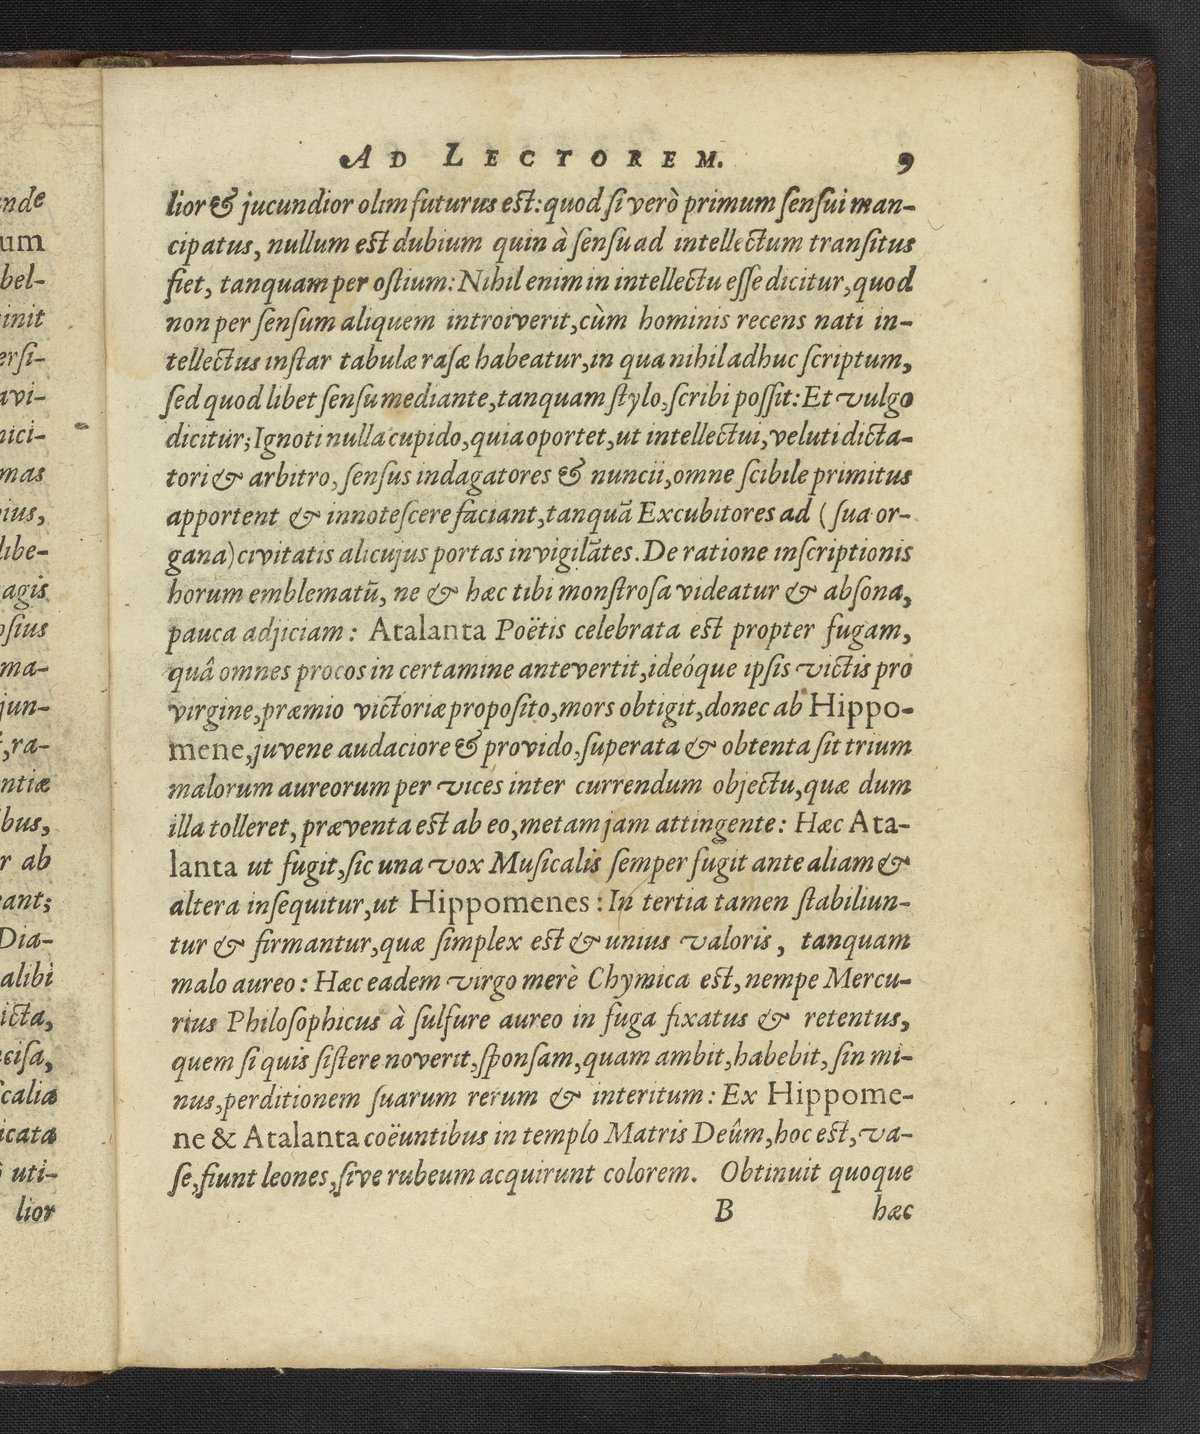 AD LECTOREM. 9
lior & jucundior olim futurus est: quod si verò primum sensui man-
cipatus, nullum est dubium quin à sensu ad intellectum transitus
fiet, tanquam per ostium: Nihil enim in intellectu esse dicitur, quod
non per sensum aliquem introiverit, cùm hominis recens nati in-
tellectus instar tabulæ rasæ habeatur, in qua nihil adhuc scriptum,
sed quod libet sensu mediante, tanquam stylo, scribi possit: Et vulgo
dicitur; Ignoti nulla cupido, quia oportet, ut intellectui, veluti dicta-
tori & arbitro, sensus indagatores & nuncii, omne scibile primitus
apportent & innotescere faciant, tanquã Excubitores ad (sua or-
gana) civitatis alicujus portas invigilãtes. De ratione inscriptionis
horum emblematũ, ne & hæc tibi monstrosa videatur & absona,
pauca adjiciam: Atalanta Poëtis celebrata est propter fugam,
quâ omnes procos in certamine antevertit, ideóque ipsis victis pro
virgine, præmio victoriæ proposito, mors obtigit, donec ab Hippo-
mene, juvene audaciore & provido, superata & obtenta sit trium
malorum aureorum per vices inter currendum objectu, quæ dum
illa tolleret, præventa est ab eo, metam jam attingente: Hæc Ata-
lanta ut fugit, sic una vox Musicalis semper fugit ante aliam &
altera insequitur, ut Hippomenes: In tertia tamen stabiliun-
tur & firmantur, quæ simplex est & unius valoris, tanquam
malo aureo: Hæc eadem virgo merè Chymica est, nempe Mercu-
rius Philosophicus à sulfure aureo in fuga fixatus & retentus,
quem si quis sistere noverit, sponsam, quam ambit, habebit, sin mi-
nus, perditionem suarum rerum & interitum: Ex Hippome-
ne & Atalanta coëuntibus in templo Matris Deûm, hoc est, va-
se, fiunt leones, sive rubeum acquirunt colorem. Obtinuit quoque
B hæc
um
bel-
init
ersi-
avi-
nici-
mas
ius,
libe-
agis
osius
ma-
jun-
,ra-
ntiæ
bus,
r ab
eant;
Dia-
alibi
icta,
cisa,
calia
icata
uti-
lior